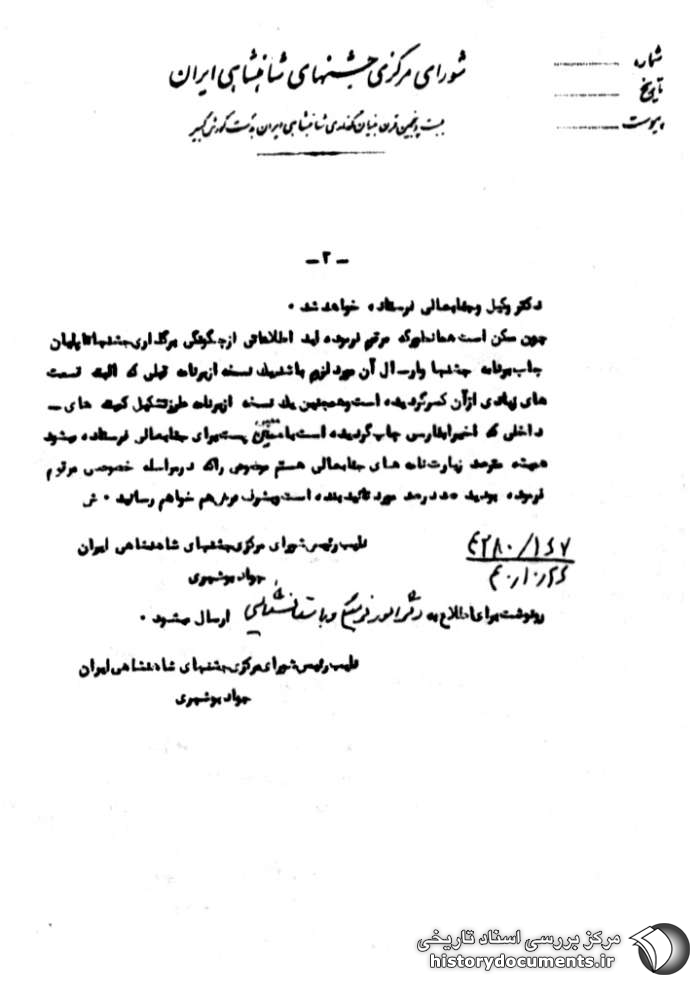 شماره
تاریخ
پیوست
شورای مرکزی جشنهای شاهنشاهی ایران
بیست و پنجمین قرن بنیان گذاری شاهنشاهی ایران بدست کورش کبیر
ـ ۲ ـ
دکتر وکیل و جنابعالی فرستاده خواهد شد .
چون ممکن است همانطور که مرقوم فرموده اید اطلاعاتی از چگونگی برگذاری جشنها تا پایان
چاپ برنامه جشنها و ارسال آن مورد لزوم باشد یک نسخه از برنامه قبلی که البته قسمت
های زیادی از آن کسر گردیده است و همچنین یک نسخه از برنامه طرز تشکیل کمیته های ـ
داخلی که اخیرا بفارسی چاپ گردیده است با همین پست برای جنابعالی فرستاده میشود
همیشه مترصد زیارت نامه های جنابعالی هستم موضوعی را که در مراسله خصوصی مرقوم
فرموده بودید صد در صد مورد تائید بنده است و بشرف عرض هم خواهم رسانید . ش
نایب رئیس شورای مرکزی جشنهای شاهنشاهی ایران
جواد بوشهری
رونوشت برای اطلاع به ارسال میشود .
نایب رئیس شورای مرکزی جشنهای شاهنشاهی ایران
جواد بوشهری
مرکز بررسی اسناد تاریخی
historydocuments.ir